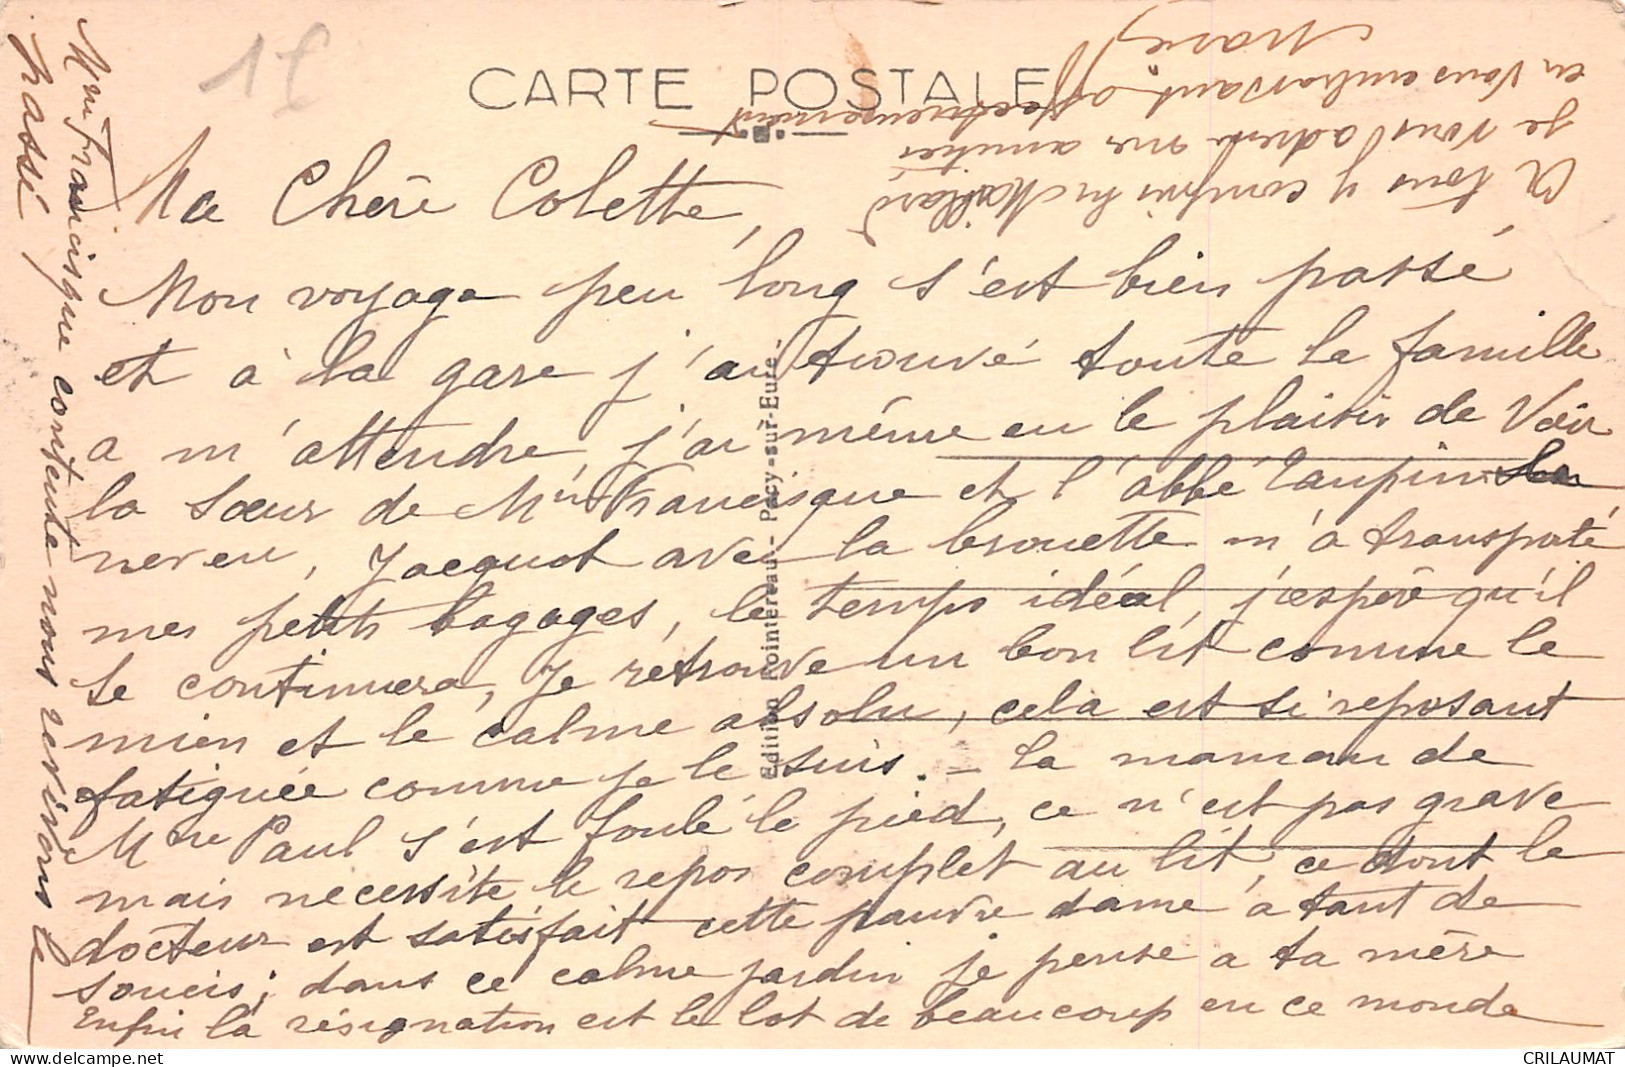 1 €
CARTE POSTALE
Ma Chère Colette,
Mon voyage peu long s'est bien passé
et à la gare j'ai trouvé toute la famille
a m'attendre, j'ai même eu le plaisir de voir
la sœur de Mme Francisque et l'abbé Taupin
neveu, Jacquot avec la brouette m'a transporté
mes petits bagages, le temps idéal, j'espère qu'il
se continuera, je retrouve un bon lit comme le
mien et le calme absolu, cela est si reposant
fatiguée comme je le suis. - La maman de
Mme Paul s'est foulé le pied, ce n'est pas grave
mais necessite le repos complet au lit, ce dont le
docteur est satisfait cette pauvre dame a tant de
soucis; dans ce calme jardin je pense a ta mère
Enfin la résignation est le lot de beaucoup en ce monde
Mme Francisque contente nous revivons le
passé
A tous y compris Maillard
je vous adresse mes amitiés
en vous embrassant affectueusement
Marie
Edition Pointereau - Pacy-sur-Eure.
CRILAUMAT